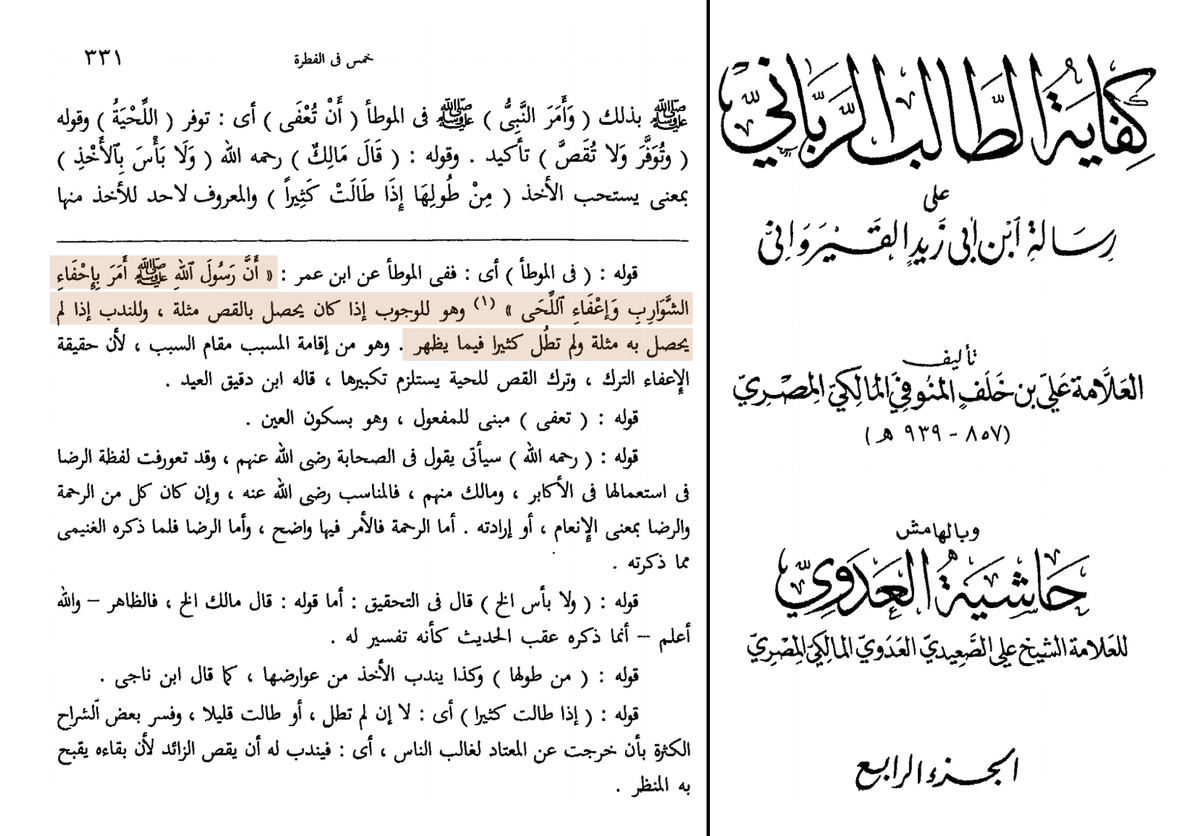 خمس فى الفطرة ٣٣١
ﷺ بذلك ( وَأَمَرَ النَّبِىُّ ) ﷺ فى الموطأ ( أَنْ تُعْفَى ) أى : توفر ( اللِّحْيَةُ ) وقوله
( وَتُوَفَّرَ وَلَا تُقَصَّ ) تأكيد . وقوله : ( قَالَ مَالِكٌ ) رحمه الله ( وَلَا بَأْسَ بِالْأَخْذِ )
بمعنى يستحب الأخذ ( مِنْ طُولِهَا إِذَا طَالَتْ كَثِيراً ) والمعروف لاحد للأخذ منها
قوله : ( فى الموطأ ) أى : ففى الموطأ عن ابن عمر : « أَنَّ رَسُولَ اللهِ ﷺ أَمَرَ بِإِحْفَاءِ
الشَّوَارِبِ وَإِعْفَاءِ اللِّحَى » (١) وهو للوجوب إذا كان يحصل بالقص مثلة ، وللندب إذا لم
يحصل به مثلة ولم تطُل كثيرا فيما يظهر . وهو من إقامة المسبب مقام السبب ، لأن حقيقة
الإعفاء الترك ، وترك القص للحية يستلزم تكبيرها ، قاله ابن دقيق العيد .
قوله : ( تعفى ) مبنى للمفعول ، وهو بسكون العين .
قوله : ( رحمه الله ) سيأتى يقول فى الصحابة رضى الله عنهم ، وقد تعورفت لفظة الرضا
فى استعمالها فى الأكابر ، ومالك منهم ، فالمناسب رضى الله عنه ، وإن كان كل من الرحمة
والرضا بمعنى الإنعام ، أو إرادته . أما الرحمة فالأمر فيها واضح ، وأما الرضا فلما ذكره الغنيمى
مما ذكرته .
قوله : ( ولا بأس الخ ) قال فى التحقيق : أما قوله : قال مالك الخ ، فالظاهر – والله
أعلم – أنما ذكره عقب الحديث كأنه تفسير له .
قوله : ( من طولها ) وكذا يندب الأخذ من عوارضها ، كما قال ابن ناجى .
قوله : ( إذا طالت كثيرا ) أى : لا إن لم تطل ، أو طالت قليلا ، وفسر بعض الشراح
الكثرة بأن خرجت عن المعتاد لغالب الناس ، أى : فيندب له أن يقص الزائد لأن بقاءه يقبح
به المنظر .
كِفَايَةُ الطَّالِبِ الرَّبَّانِيِّ
على
رسَالة ابْن أبى زَيدٍ القَيْرَوَانى
تأليف
العَلَّامَة عَلِيّ بن خَلَفٍ المنُوفيّ المَالِكيّ المِصْريّ
(٨٥٧ - ٩٣٩ هـ)
وبالهامش
حَاشِيَةُ العَدَوِيّ
للعَلامَة الشيخ عَلي الصَّعِيديّ العَدَويّ المَالِكيّ المِصْريّ
الجزء الرابع